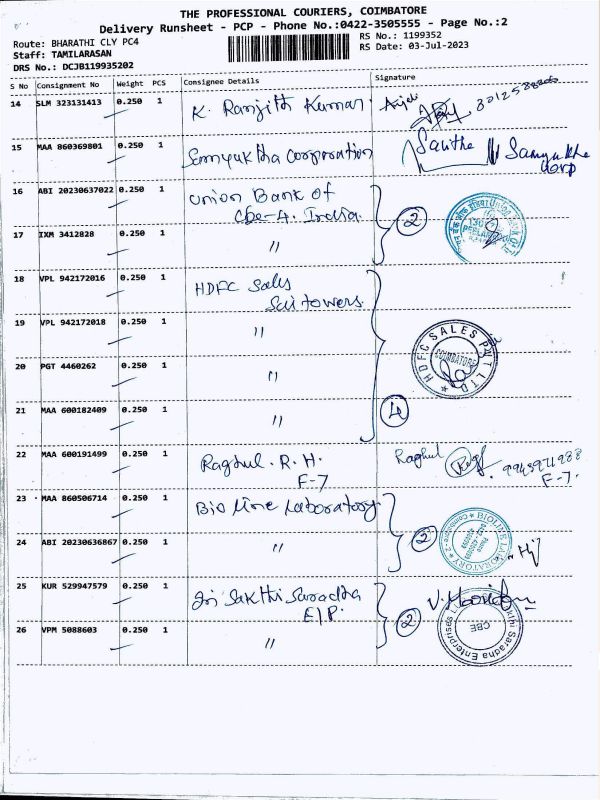 THE PROFESSIONAL COURIERS, COIMBATORE
Delivery Runsheet - PCP - Phone no.:0422-3505555 - Page No.:2
Route: BHARATHI CLY PC4
Staff: TAMILARASAN
DRS No.: DCJB119935202
RS No.: 1199352
RS Date: 03-Jul-2023
S No Consignment No Weight PCS Consignee Details Signature
14 SLM 323131413 0.250 1 K. Ranjith Kumar
15 MAA 860369801 0.250 1 Samyuktha Corporation Savitha Samyuktha
16 ABI 20230637022 0.250 1 Union Bank of
Cbe-4. India. 2
17 IXM 3412828 0.250 1 "
18 VPL 942172016 0.250 1 HDFC Sales
Sai towers.
19 VPL 942172018 0.250 1 "
HDFC SALES PVT LTD
COIMBATORE
20 PGT 4460262 0.250 1 "
21 MAA 600182409 0.250 1 " 4
22 MAA 600191499 0.250 1 Raghul. R. H. Raghul
F-7 F-7.
23 MAA 860506714 0.250 1 Bio line Laboratory
BIOLINE LABORATORY
24 ABI 20230636867 0.250 1 " 2
25 KUR 529947579 0.250 1 Sri Sakthi Saradha
E/P. 2
Sakthi Saradha Enterprises
CBE
26 VPM 5088603 0.250 1 "